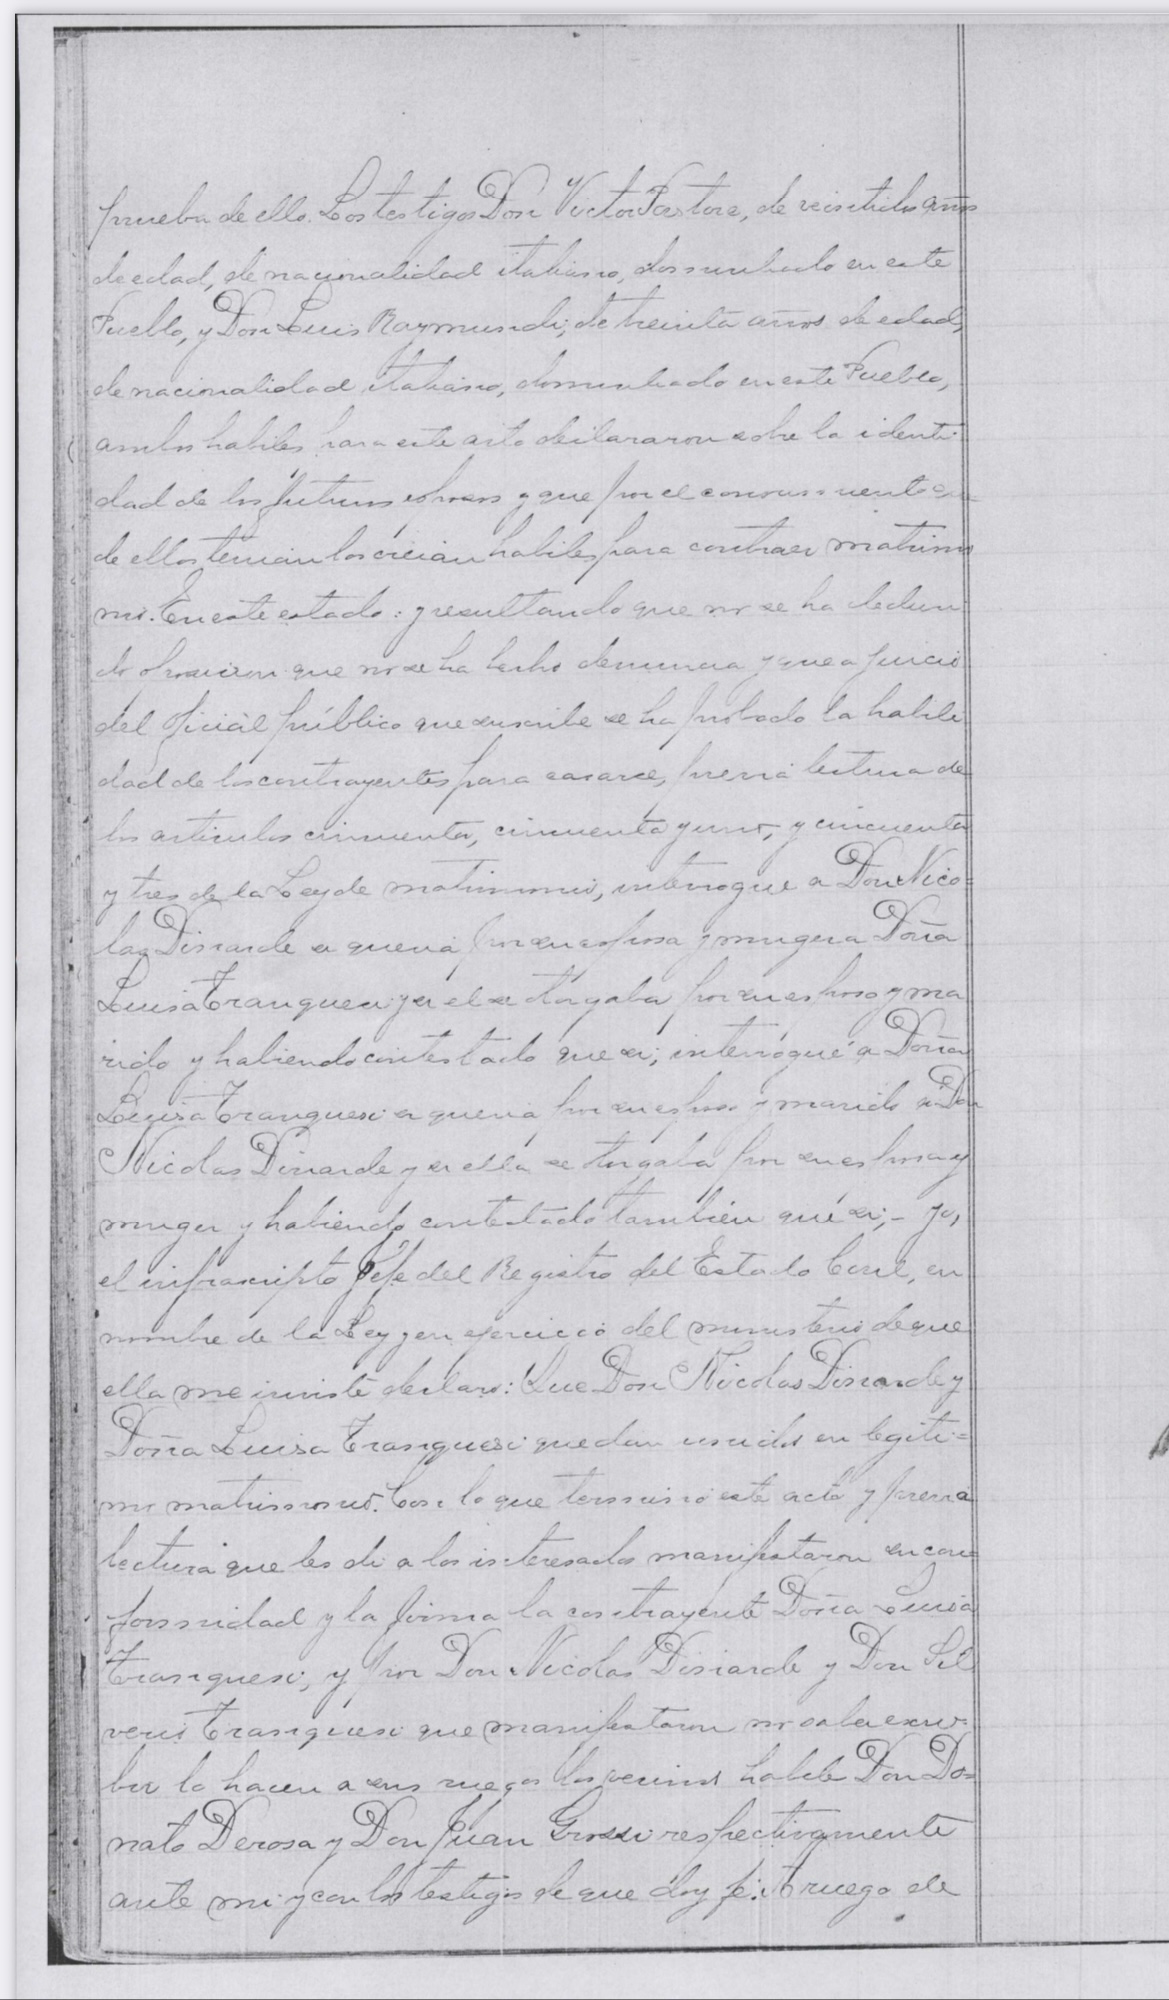 prueba de ello. Los testigos Don Victor Pastore, de veintidos años
de edad, de nacionalidad italiano, domiciliado en este
Pueblo, y Don Luis Raymundi, de treinta años de edad,
de nacionalidad italiano, domiciliado en este Pueblo,
ambos habiles para este acto declararon sobre la identi-
dad de los futuros esposos y que por el conocimiento que
de ellos tenian los creian habiles para contraer matrimo
nio. En este estado: y resultando que no se ha deduci
do oposicion que no se ha hecho denuncia y que a juicio
del oficial público que suscribe se ha probado la habili
dad de los contrayentes para casarse, previa lectura de
los articulos cincuenta, cincuenta y uno, y cincuenta
y tres de la Ley de matrimonio, interrogue a Don Nico=
las Disiarde si queria por su esposa y muger a Doña
Luisa Tranquesi y si el se otorgaba por su esposo y ma
rido y habiendo contestado que si; interrogué a Doña
Luisa Tranquesi si queria por su esposo y marido a Don
Nicolas Disiarde y si ella se otorgaba por su esposa y
muger y habiendo contestado también que si;- yo,
el infrascripto Jefe del Registro del Estado Civil, en
nombre de la Ley y en ejercicio del ministerio de que
ella me inviste declaro: Que Don Nicolas Disiarde y
Doña Luisa Tranquesi quedan unidos en legiti=
mo matrimonio. Con lo que termino este acto y previa
lectura que les di a los interesados manifestaron su con=
formidad y la firma la contrayente Doña Luisa
Tranquesi, y por Don Nicolas Disiarde y Don Sil
verio Tranquesi que manifestaron no saber escri=
bir lo hacen a sus ruegos los vecinos habiles Don Do=
nato Derosa y Don Juan Grossi respectivamente
ante mi y con los testigos de que doy fe: A ruego de